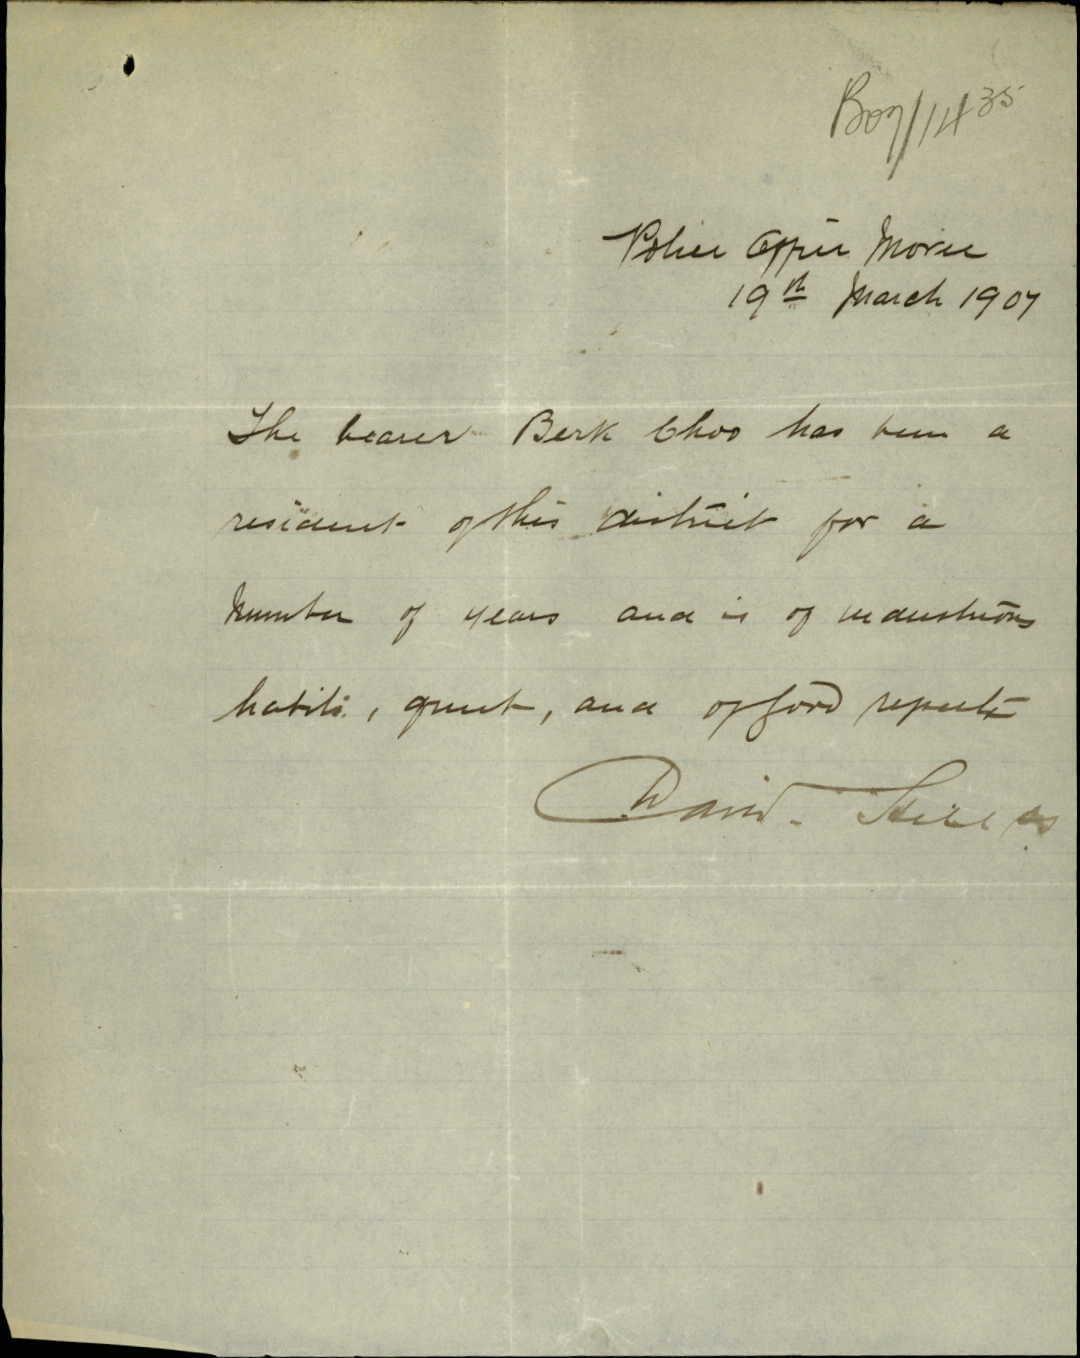 B07/1435
Police Office Moree
19th March 1907
The bearer Berk Choo has been a
resident of this district for a
Number of years and is of industrious
habits, quiet, and of good repute
David